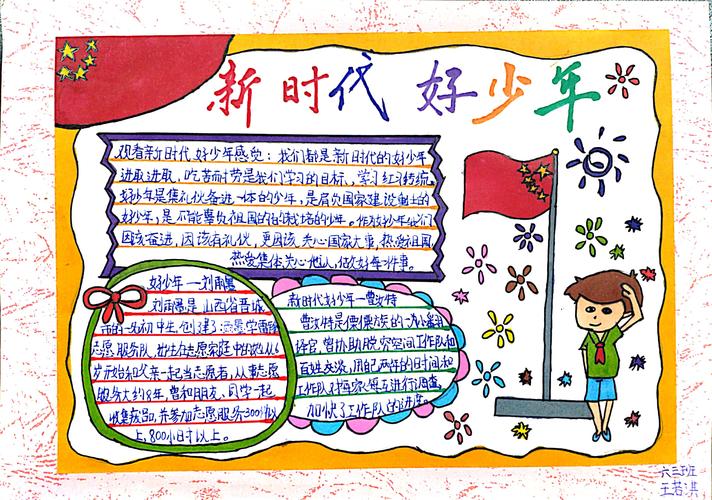 新时代 好少年
观看新时代好少年感觉：我们都是新时代的好少年
进取进取，吃苦而劳是我们学习的目标、学习红习传统
好少年是集礼仪奋进一体的少年，是肩负国家建设制土的
好少年，是不能辜负祖国的的栽培的少年。作为好少年我们
因该奋进，因该有礼仪，更因该关心国家大事，热爱祖国
热爱集体，关心他人，做好每件事。
好少年——刘雨墨
刘雨墨是山西省晋城
市的一名初中生，创建了
志愿服务队，出生在志愿家庭中的她从6
岁开始和父亲一起当志愿者，从事志愿
服务大约8年，曾和朋友、同学一起
并参加志愿服务300次以
上，800小时以上。
新时代好少年——曹汝特
曹汝特是傈僳族的一名小翻
译官，曾协助脱穷空间工作队和
百姓交谈，用自己两年的时间和
工作队对每家每户进行调查，
加快了工作队的进度。
六三班
王若淇